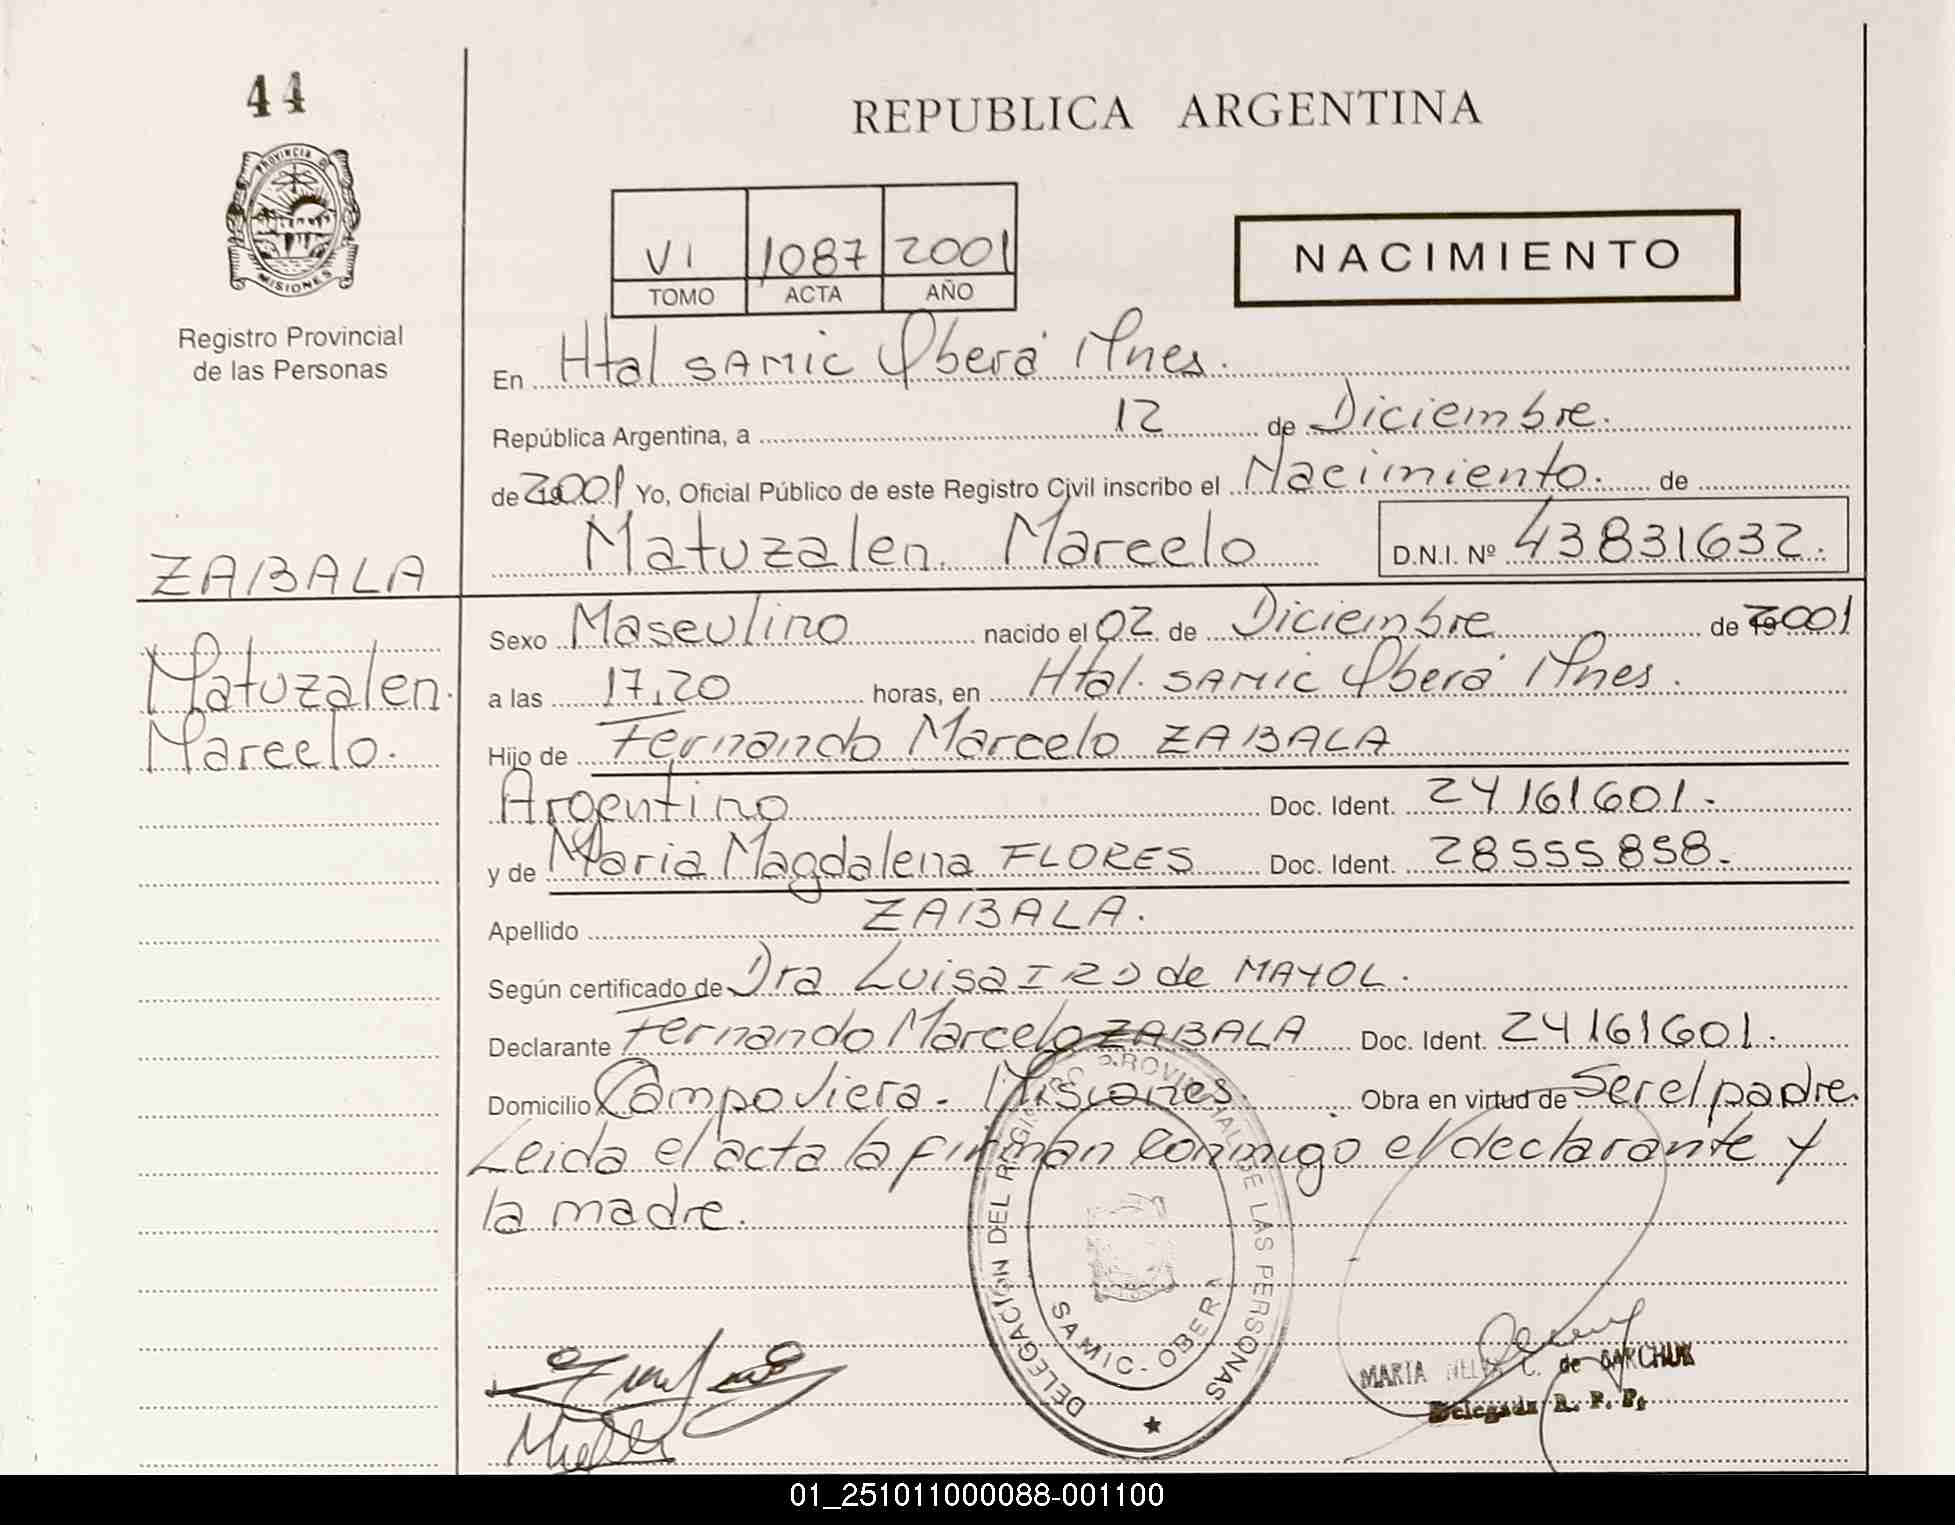 44
PROVINCIA DE
MISIONES
Registro Provincial
de las Personas
ZABALA
Matuzalen.
Marcelo.
REPUBLICA ARGENTINA
VI 1087 2001
TOMO ACTA AÑO
NACIMIENTO
En Htal SAMIC Oberá Mnes.
República Argentina, a 12 de Diciembre.
de 2001 Yo, Oficial Público de este Registro Civil inscribo el Nacimiento. de
Matuzalen. Marcelo D.N.I. Nº 43831632.
Sexo Masculino nacido el 02 de Diciembre de 2001
a las 17,20 horas, en Htal. SAMIC Oberá Mnes.
Hijo de Fernando Marcelo ZABALA
Argentino Doc. Ident. 24161601.
y de Maria Magdalena FLORES Doc. Ident. 28555858.
Apellido ZABALA.
Según certificado de Dra Luisa de MAYOL.
Declarante Fernando Marcelo ZABALA Doc. Ident. 24161601.
Domicilio Campo Viera. Misiones. Obra en virtud de Ser el padre.
Leida el acta la firman conmigo el declarante y
la madre.
DELEGACIÓN DEL REGISTRO PROVINCIAL DE LAS PERSONAS
SAMIC - OBERA
MARIA C. de
Delegada R. P. P.
01_251011000088-001100